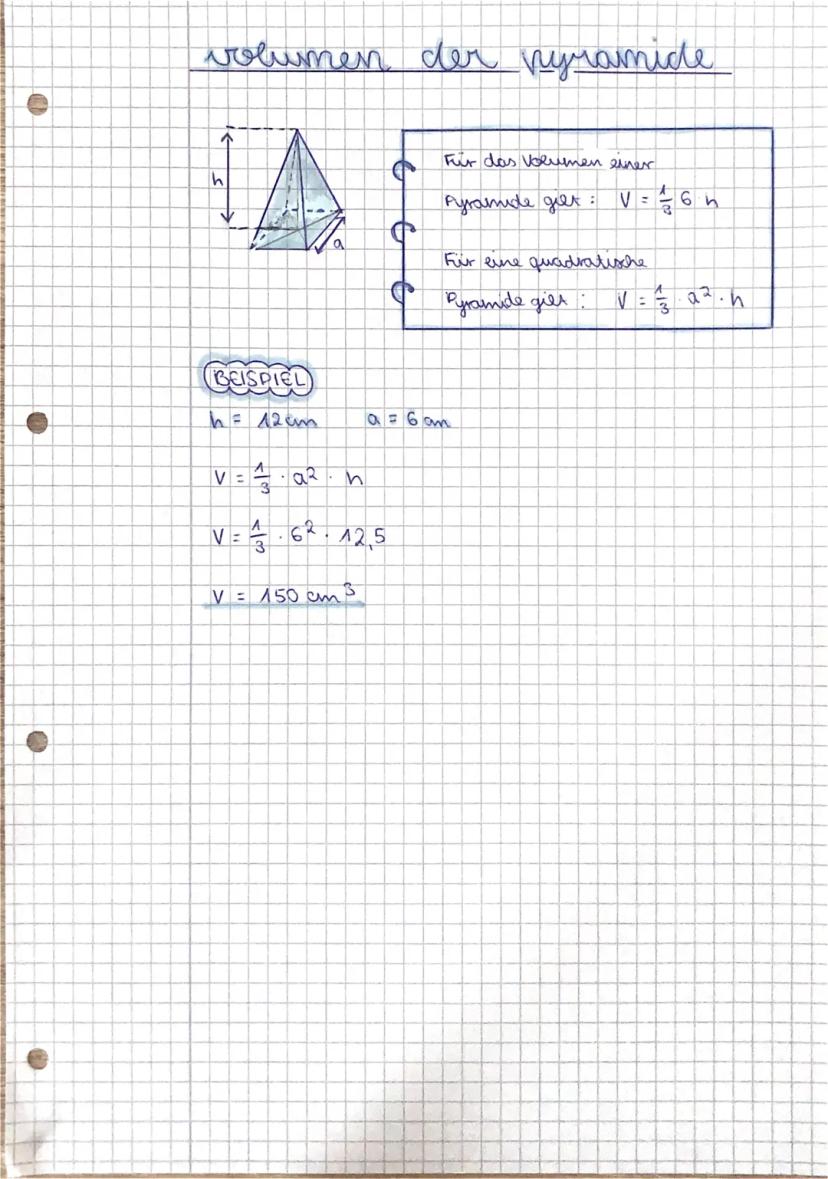 volumen der pyramide
h
a
Für das Volumen einer
Pyramide gilt : V = 1/3 G · h
Für eine quadratische
Pyramide gilt : V = 1/3 · a² · h
BEISPIEL
h = 12cm a = 6 cm
V = 1/3 · a² · h
V = 1/3 · 6² · 12,5
V = 150 cm³